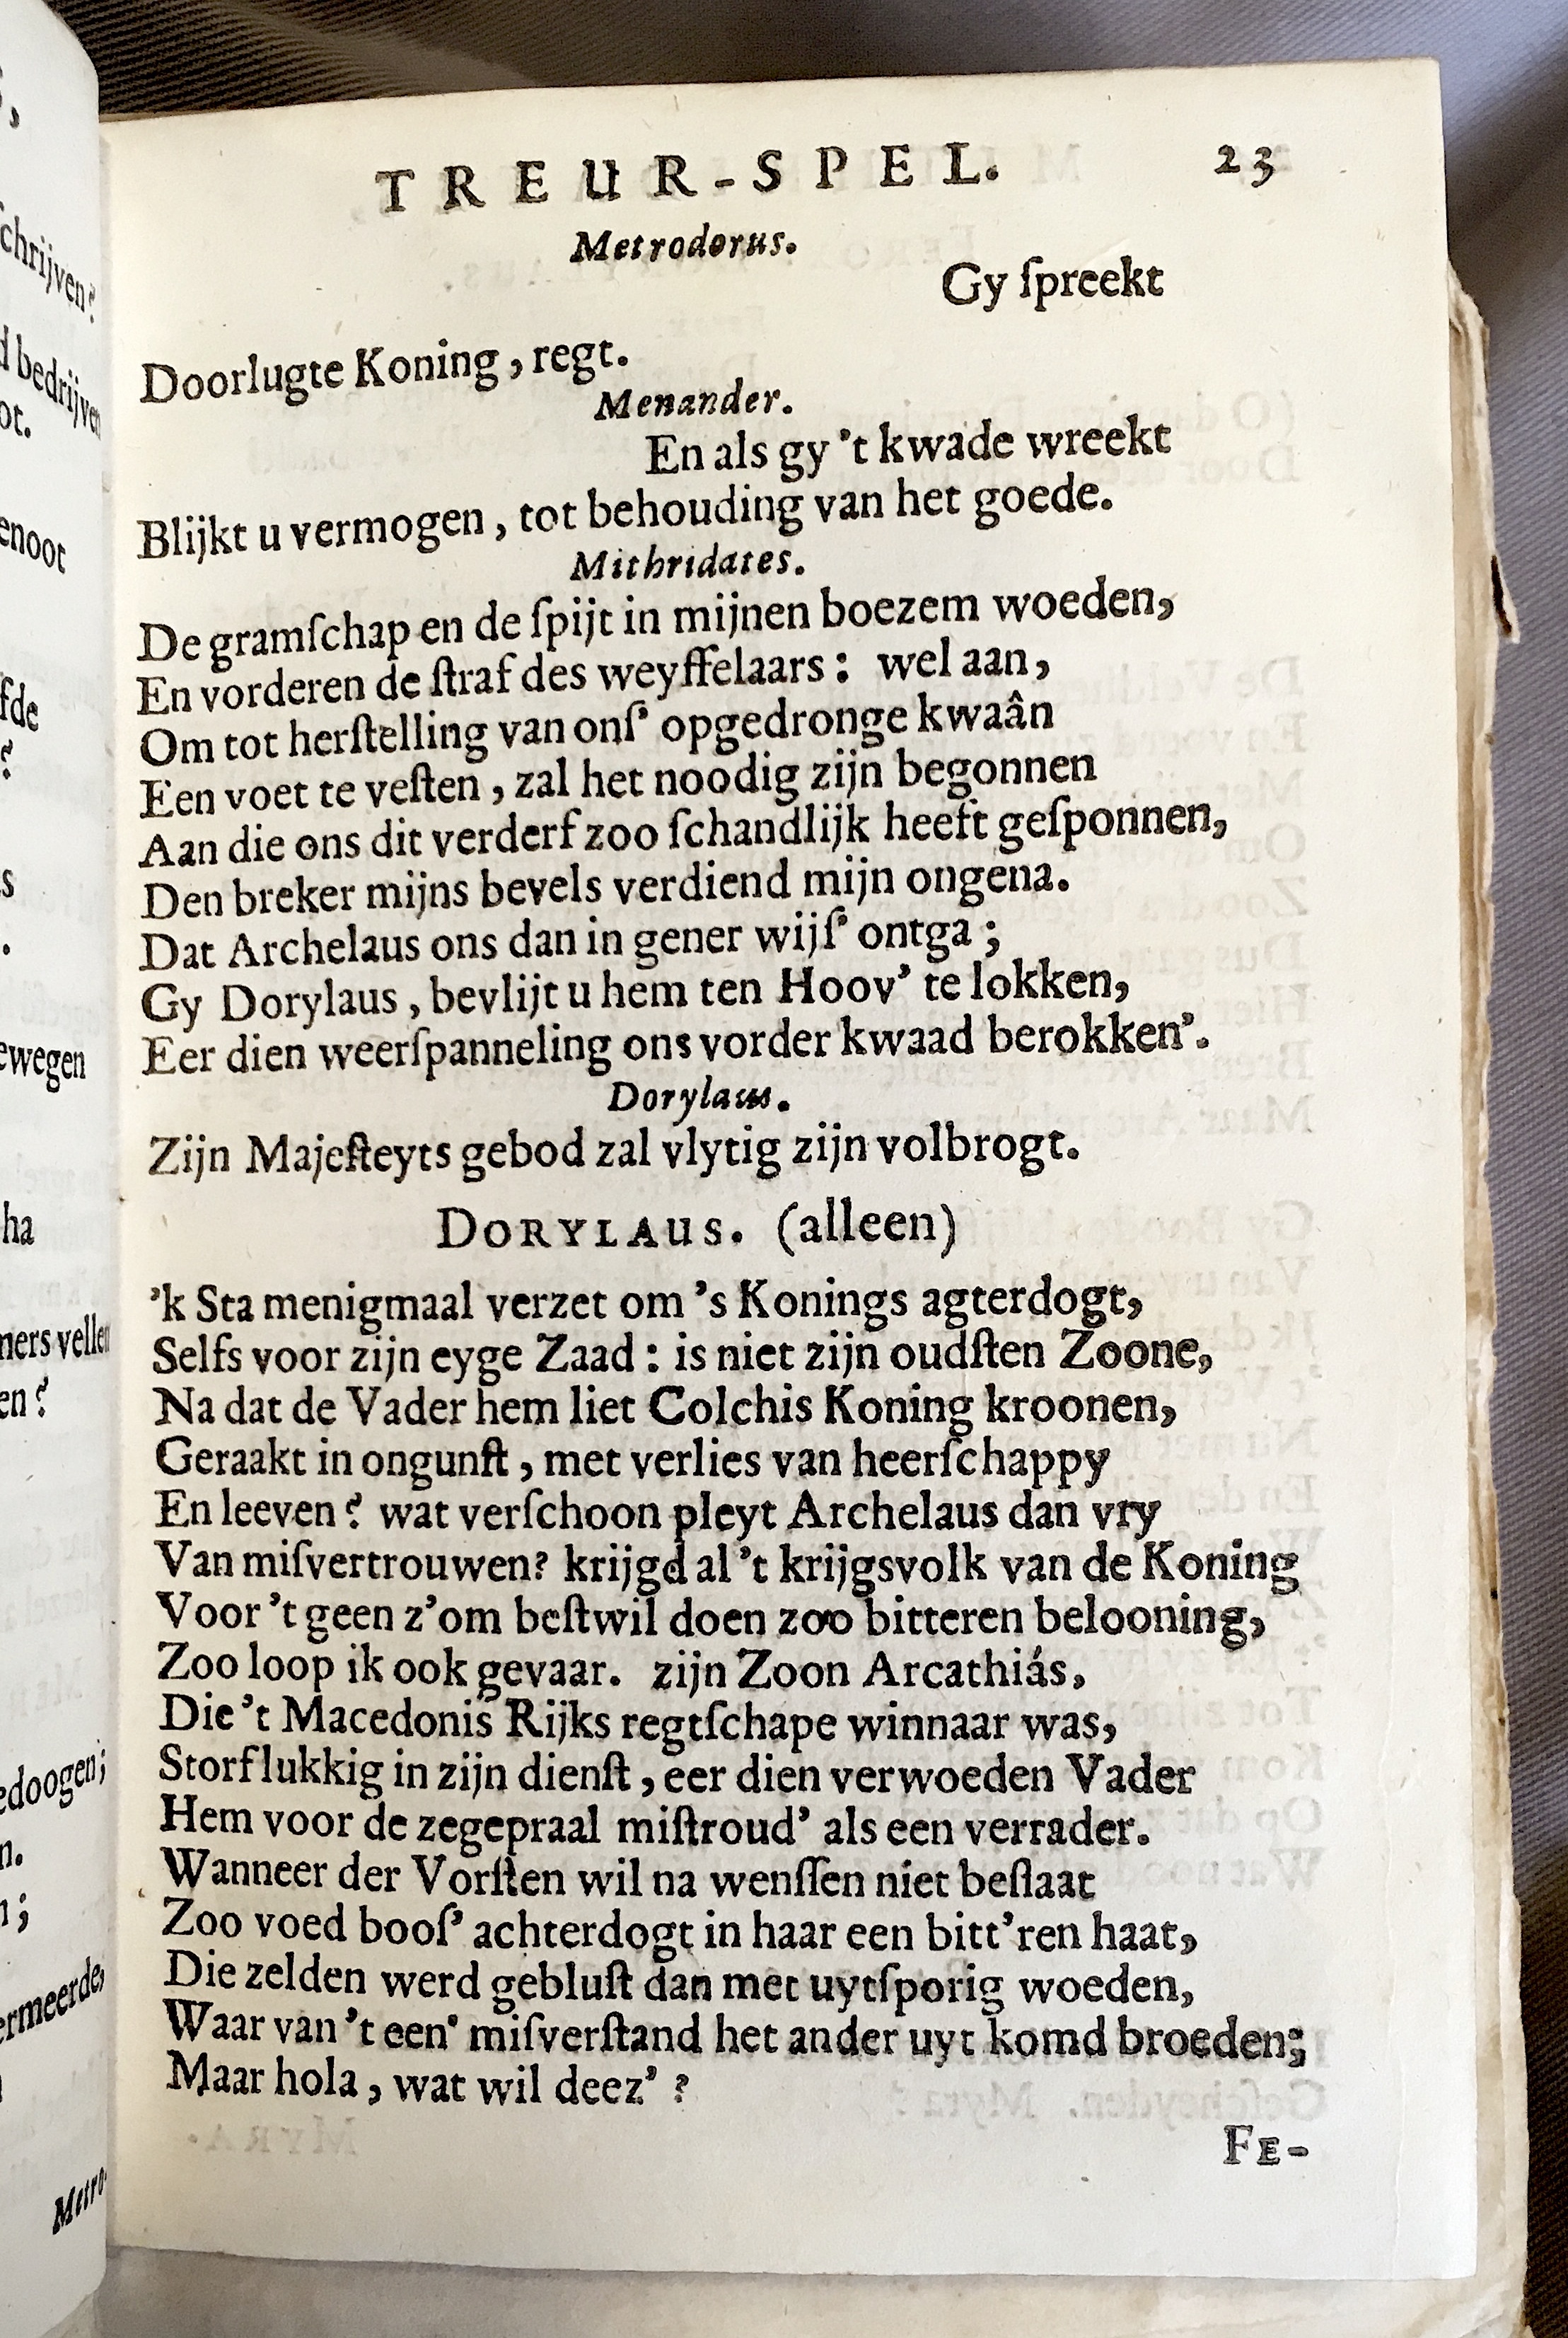 TREUR-SPEL. 23
Metrodorus.
Gy ſpreekt
Doorlugte Koning, regt.
Menander.
En als gy 't kwade wreekt
Blijkt u vermogen, tot behouding van het goede.
Mithridates.
De gramſchap en de ſpijt in mijnen boezem woeden,
En vorderen de ſtraf des weyffelaars: wel aan,
Om tot herſtelling van onſ' opgedronge kwaân
Een voet te veſten, zal het noodig zijn begonnen
Aan die ons dit verderf zoo ſchandlijk heeft geſponnen,
Den breker mijns bevels verdiend mijn ongena.
Dat Archelaus ons dan in gener wijſ' ontga;
Gy Dorylaus, bevlijt u hem ten Hoov' te lokken,
Eer dien weerſpanneling ons vorder kwaad berokken'.
Dorylaus.
Zijn Majeſteyts gebod zal vlytig zijn volbrogt.
DORYLAUS. (alleen)
'k Sta menigmaal verzet om 's Konings agterdogt,
Selfs voor zijn eyge Zaad: is niet zijn oudſten Zoone,
Na dat de Vader hem liet Colchis Koning kroonen,
Geraakt in ongunſt, met verlies van heerſchappy
En leeven? wat verſchoon pleyt Archelaus dan vry
Van miſvertrouwen? krijgd al 't krijgsvolk van de Koning
Voor 't geen z'om beſtwil doen zoo bitteren belooning,
Zoo loop ik ook gevaar. zijn Zoon Arcathiás,
Die 't Macedonis Rijks regtſchape winnaar was,
Storf lukkig in zijn dienſt, eer dien verwoeden Vader
Hem voor de zegepraal miſtroud' als een verrader.
Wanneer der Vorſten wil na wenſſen niet beſlaat
Zoo voed booſ' achterdogt in haar een bitt'ren haat,
Die zelden werd gebluſt dan met uytſporig woeden,
Waar van 't een' miſverſtand het ander uyt komd broeden;
Maar hola, wat wil deez'?
FE-
chrijven?
bedrijven
ot.
enoot
fde
ewegen
ha
mers vellen
en?
edoogen;
n.
ermeerde,
Metro-